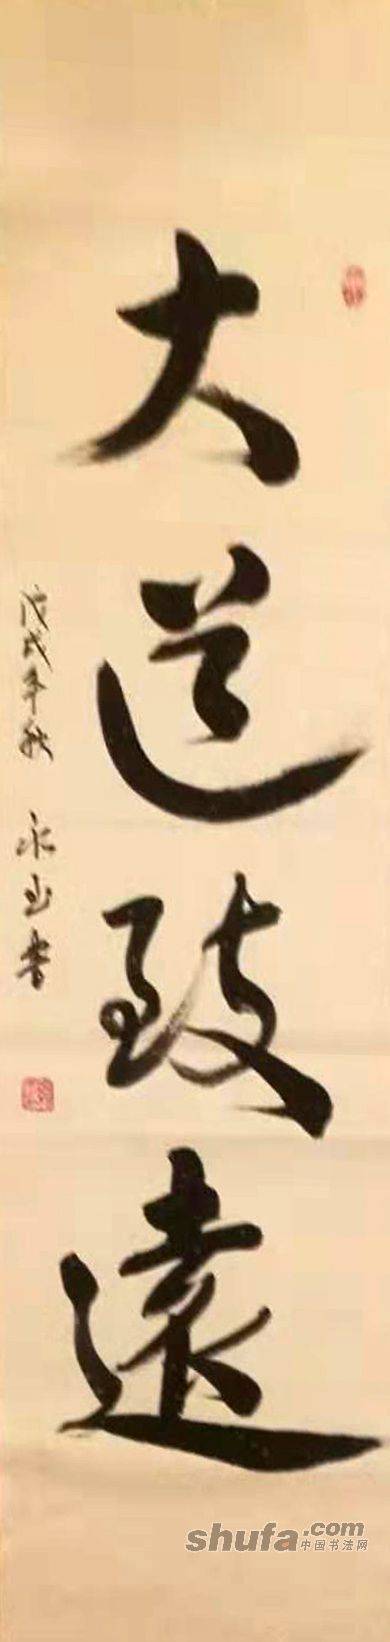 大道致遠
戊戌年秋 永玉書
shufa.com
中国书法网